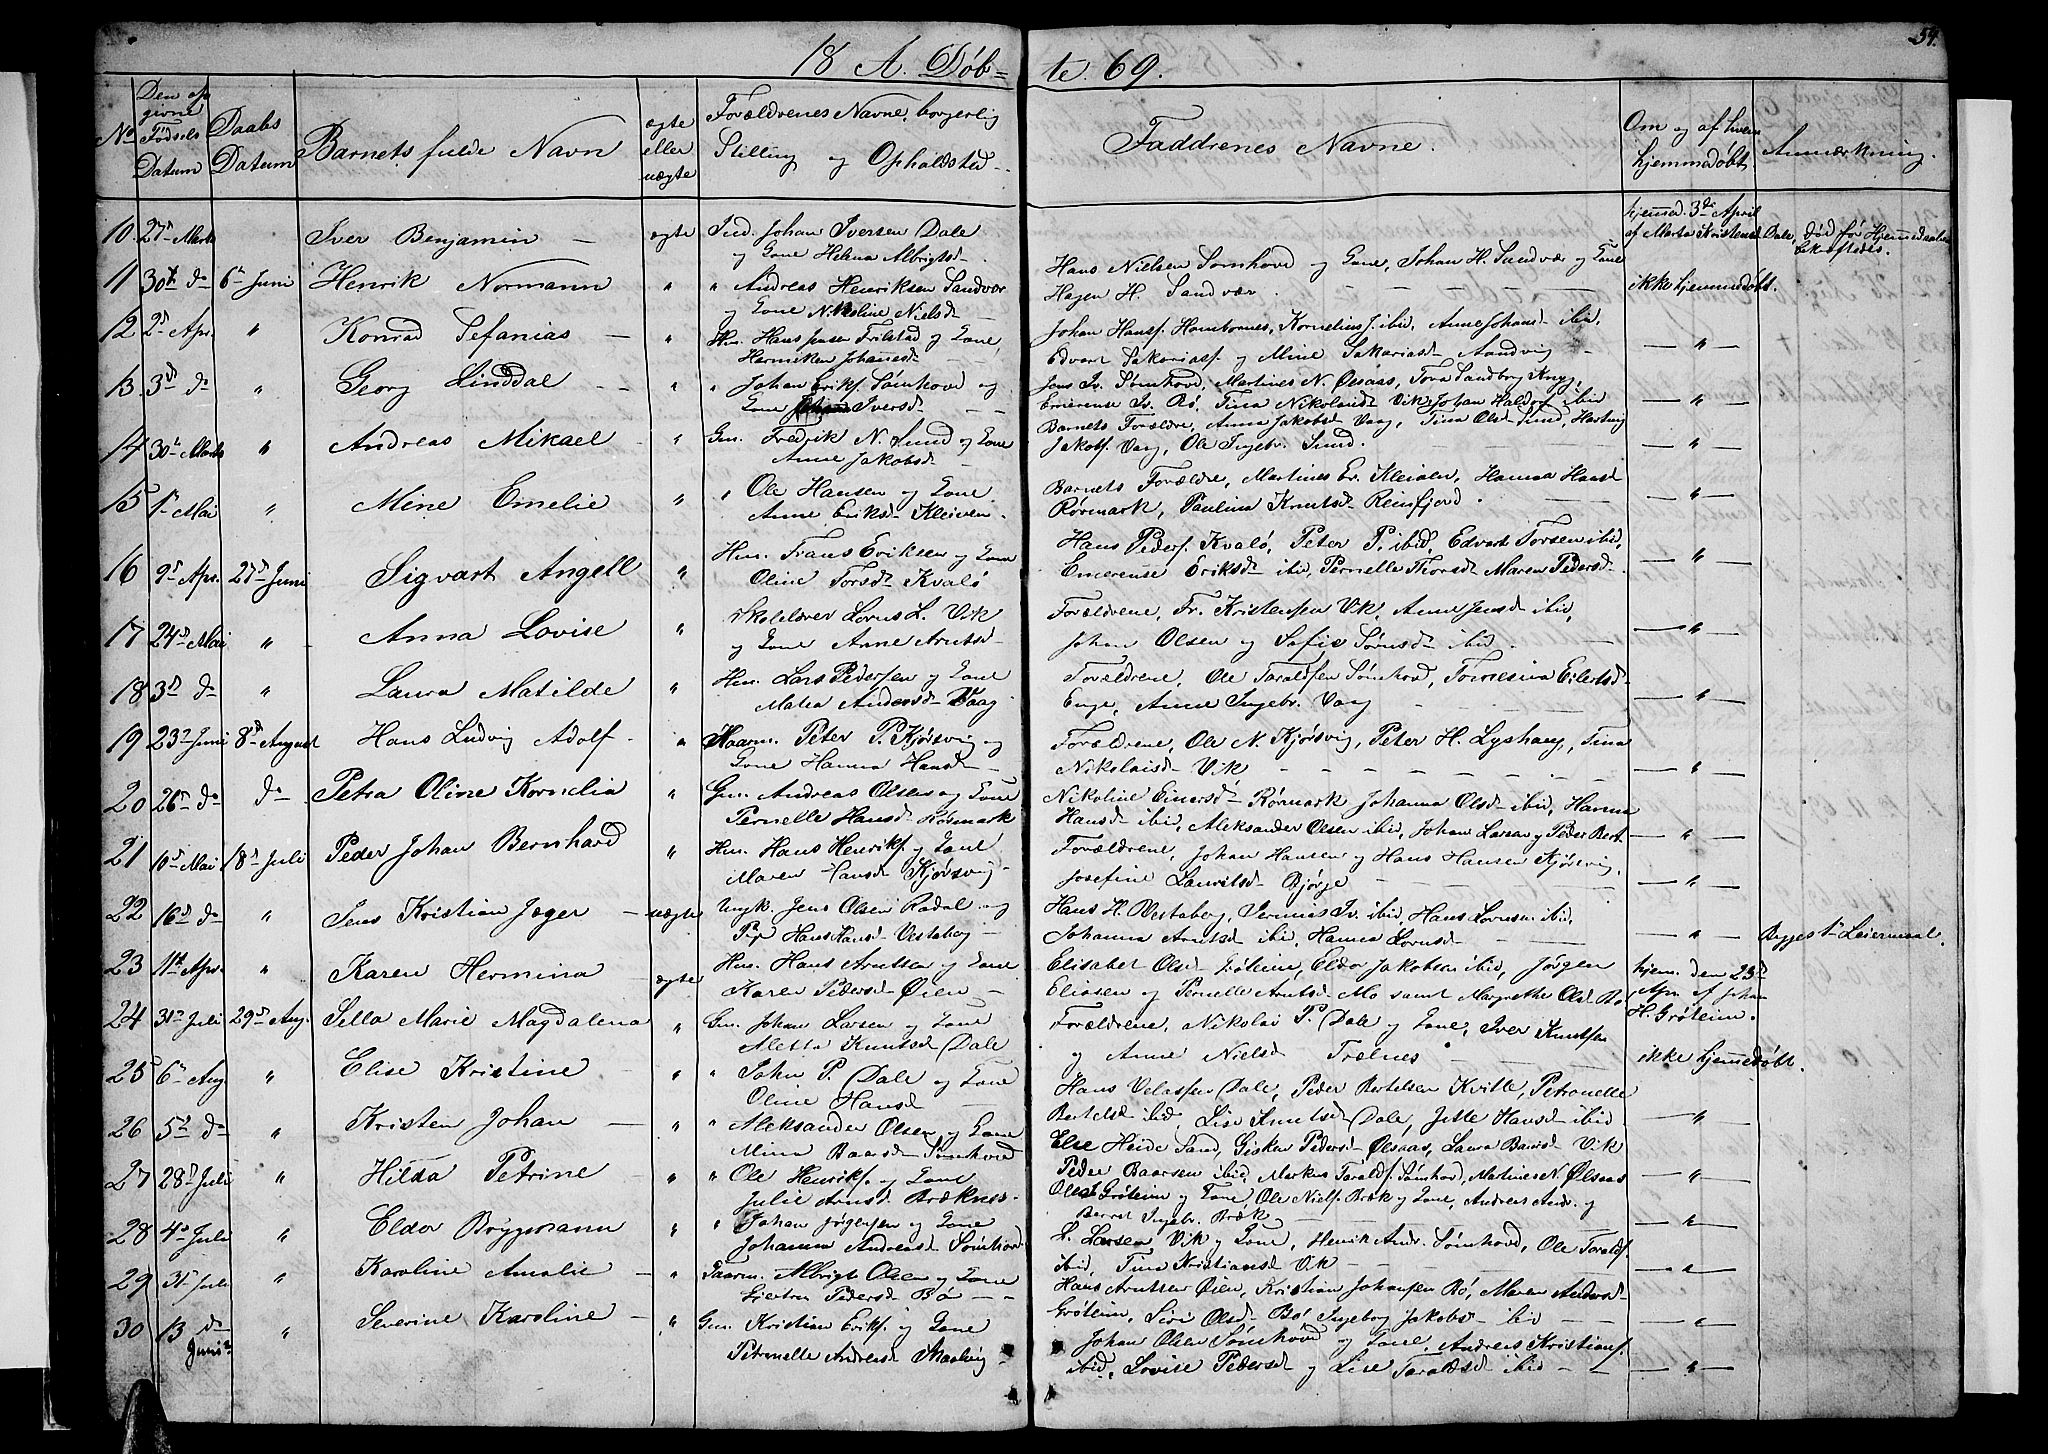 54.
18 A. Døb= te. 69.
No
Den opgivne Fødsels Datum
Daabs Datum
Barnets fulde Navn
ægte eller uægte
Forældrenes Navne, borgerlig Stilling og Opholdsted
Faddrenes Navne.
Om og af hvem hjemmedøbt.
Anmærkning.
10 27d Marts Iver Benjamin — ægte Ind. Johan Iversen Dale
og Kone Helena Albrigtsd
hjemmed. 3die April af Marta Kristensd Dale, død før Hjemmedaaben bekræftedes.
11 30te do 6te Juni Henrik Normann " " Andreas Henriksen Sandvær
og Kone Nikoline Nielsd
Hans Nielsen Sømhovd og Kone, Johan H. Sandvær og Kone
Hagen H. Sandvær. ikke hjemmedøbt.
12 2d Apr. " Konrad Sefanias — " Hm. Hans Jensen Frilstad og Kone,
Hermiken Johansd
Johan Hansf. Hombornes, Kornelius J. ibid, Anne Johansd ibid,
Edvart Sakariasf. og Mine Sakariasd Aandvig — " —
13 3d do " Georg Linddal — " " Johan Erikf. Sømhovd og
Kone Iversd
Jens Iv. Sømhovd, Martines N. Ølsaas, Tora Sandberg Knyg,
Emerense Iv. Bø, Tina Nikolaisd Vik, Johan Haldorf ibid — " —
14 30te Marts " Andreas Mikael — " Gm. Fredrik N. Sund og Kone
Anne Jakobsd
Barnets Forældre, Anna Jakobsd Vaag, Tina Olsd Sund, Hartvig
Jakobf. Vaag, Ole Ingebr. Sund. — " —
15 1ste Mai " Mine Emelie " " Ole Hansen og Kone
Anne Eriksd Kleiven.
Barnets Forældre, Martines Er. Kleiven, Hanna Hansd
Rørmark, Paulina Knutsd Reinfjord. — " —
16 9d Apr. 27d Juni Sigvart Angell " Hm. Frans Eriksen og Kone
Oline Torsd Kvalø
Hans Pedersf. Kvalø, Peter P. ibid, Edvart Torsen ibid,
Emerense Eriksd ibid, Pernelle Thorsd Maren Pedersd — " —
17 24d Mai " Anna Lovise " Skolelærer Lorns L. Vik
og Kone Anne Arntsd
Forældrene, Fr. Kristensen Vik, Anne Jensd ibid,
Johan Olsen og Sofie Sørnsd ibid. — " —
18 3d do " Laura Matilde " Hm. Lars Pedersen og Kone
Matea Andersd Vaag
Forældrene, Ole Taraldsen Sømhovd, Tomesina Eilertsd
Enge, Anne Ingebr. Vaag — " —
19 23d Juni 8d August Hans Ludvig Adolf " Haarm. Peter P. Kjørsvig og
Kone Hanna Hansd
Forældrene, Ole N. Kjørsvig, Peter H. Lyshaug, Tina
Nikolaisd Vik — " —
20 26d do do Petra Oline Kornelia " Gm. Andreas Olsen og Kone
Pernelle Hansd Rørmark
Nikoline Einersd Rørmark Johanna Olsd ibid, Hanna
Hansd ibid, Aleksander Olsen ibid, Johan Larsen og Peder Bert. — " —
21 10d Mai 18d Juli Peder Johan Bernhard " Hm. Hans Henrikf. og Kone
Maren Hansd Kjørsvig
Forældrene, Johan Hansen og Hans Hansen Kjørsvig,
Josefine Lauritsd Bjørge — " —
22 16d do " Jens Kristian Jæger — uægte Ungk. Jens Olsen Rødal og
Pip Hans Hansd Vestabog
Hans H. Vestabog, Jermias Iv. ibid, Hans Lornsen ibid,
Johanna Arntsd ibid, Hanna Lornsd — " — Begges 1ste Leiermaal.
23 11te Apr. " Karen Hermina — ægte Hm. Hans Arntsen og Kone
Karen Pedersd Øien
Elisabet Olsd Grøteim, Eldor Jakobsen ibid, Jørgen
Eliasen og Pernelle Arntsd Mo samt Margrethe Olsd Bø
hjem. den 23d Apr. af Johan H. Grøteim.
24 31d Juli 29d Aug. Sella Marie Magdalena " Gm. Johan Larsen og Kone
Aletta Knutsd Dale
Forældrene, Nikolai P. Dale og Kone, Iver Knutsen
og Anne Nielsd Trælnes — ikke hjemmedøbt.
25 6te Aug. " Elise Kristine — " " John P. Dale og Kone
Oline Hansd
Hans Velassen Dale, Peder Bertelsen Kvitle, Petronelle
Bertelsd ibid, Lise Knutsd Dale, Jette Hansd ibid — " —
26 5te do " Kristen Johan — " " Aleksander Olsen og Kone
Mina Baarsd Sømhovd
Else Heide Sand, Gisken Pedersd Ølsaas, Laura Baarsd Vik
Peder Baarsen ibid, Markus Taraldf. Sømhovd, Martines N. Ølsaas — " —
27 28d Juli " Hilda Petrine " " Ole Henrikf. og Kone
Julie Arnsd Bræknes
Ole Grøteim og Kone, Ole Nielf. Bræk og Kone, Andreas And. og
Berret Ingebr. Bræk — " —
28 4de Juli " Eldor Bryggmann " " Johan Jørgensen og Kone
Johanna Andreasd Sømhovd
L. Larsen Vik og Kone, Henrik Andr. Sømhovd, Ole Taraldf.
ibid, Tina Kristiansd Vik — " —
29 31d Juli " Karoline Amalie — " Faarm. Albrigt Olsen og Kone
Gjertru Pedersd Bø
Hans Arntsen Øien, Kristian Johansen Bø, Maren Andersd
Grøteim, Siri Olsd Bø Ingebog Jakobsd ibid — " —
30 13 do Juni " Severine Karoline — " Gm. Kristian Erikf. og Kone
Petronelle Andersd Maalvig
Johan Olsen Sømhovd og Kone, Andreas Kristiansf.
ibid, Lovise Pedersd og Lise Taraldsd ibid — " —